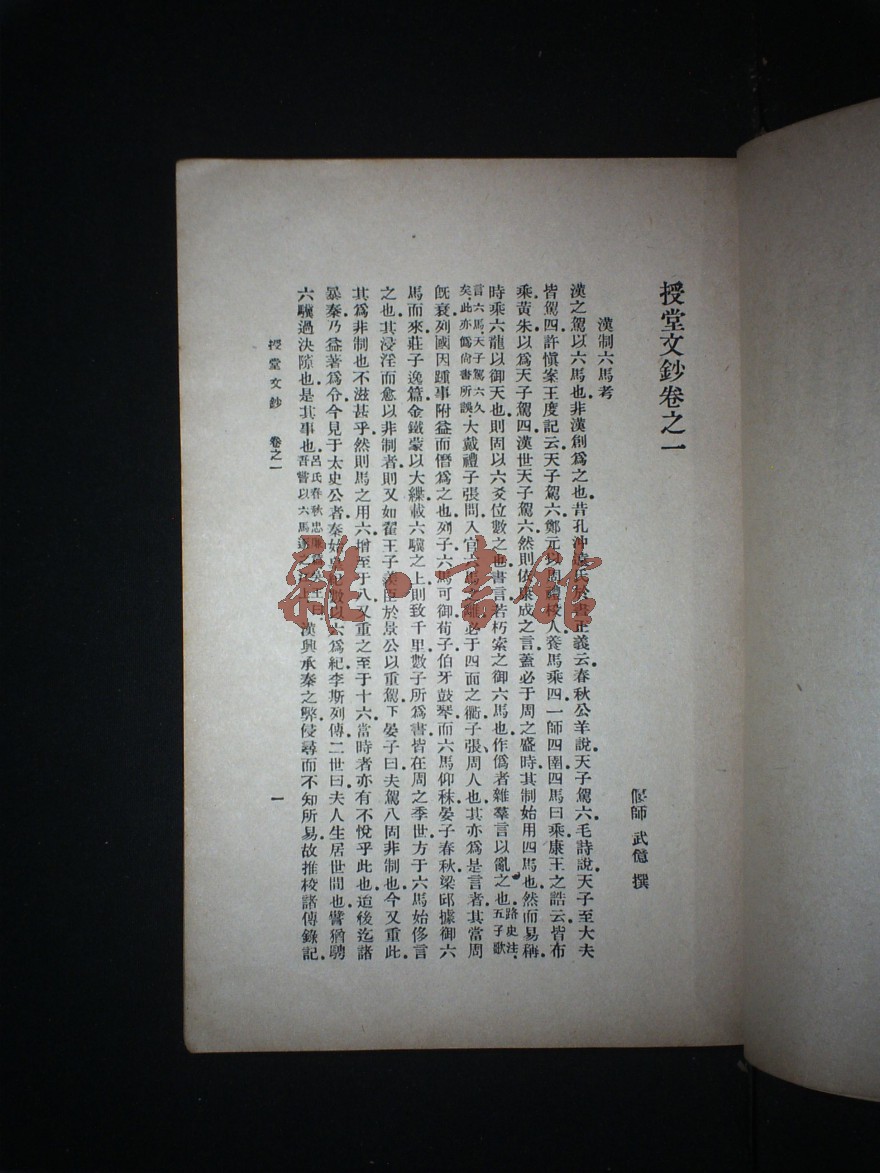 授堂文鈔卷之一
偃師 武億 撰
漢制六馬考
漢之駕以六馬也非漢創爲之也昔孔沖遠氏於書正義云春秋公羊說天子駕六毛詩說天子至大夫
皆駕四許愼案王度記云天子駕六鄭元以周禮校人養馬乘四一師四圉四馬曰乘康王之誥云皆布
乘黃朱以爲天子駕四漢世天子駕六然則依康成之言蓋必于周之盛時其制始用四馬也然而易稱
時乘六龍以御天也則固以六爻位數之也書言若朽索之御六馬也作僞者雜羣言以亂之也路史注五子歌
言六馬天子駕六久矣此亦僞尙書所誤大戴禮子張問入官六馬之離必于四面之衢子張周人也其亦爲是言者其當周
旣衰列國因踵事附益而僭爲之也列子六馬可御荀子伯牙鼓琴而六馬仰秣晏子春秋梁邱據御六
馬而來莊子逸篇金鐵蒙以大緤載六驥之上則致千里數子所爲書皆在周之季世方于六馬始侈言
之也其浸淫而愈以非制者則又如翟王子羨臣於景公以重駕下晏子曰夫駕八固非制也今又重此
其爲非制也不滋甚乎然則馬之用六增至于八又重之至于十六當時者亦有不悅乎此也迨後迄諸
暴秦乃益著爲令今見于太史公者秦始皇紀數以六爲紀李斯列傳二世曰夫人生居世間也譬猶騁
六驥過決隙也是其事也呂氏春秋忠廉篇吳王曰吾嘗以六馬逐之江上漢興承秦之弊侵尋而不知所易故推校諸傳錄記
授堂文鈔 卷之一
一
雜·書館